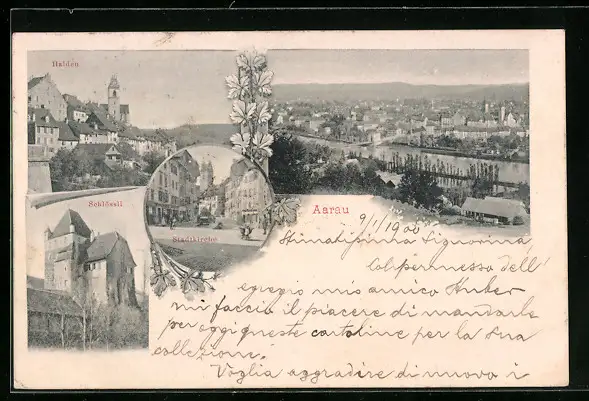 Halden
Schlössli
Stadtkirche
Aarau
9/1/1900
Stimatissima Signorina,
Col permesso dell'
egregio mio amico Huber
mi faccio il piacere di mandarle
per oggi queste cartoline per la sua
collezione.
Voglia aggradire di nuovo i